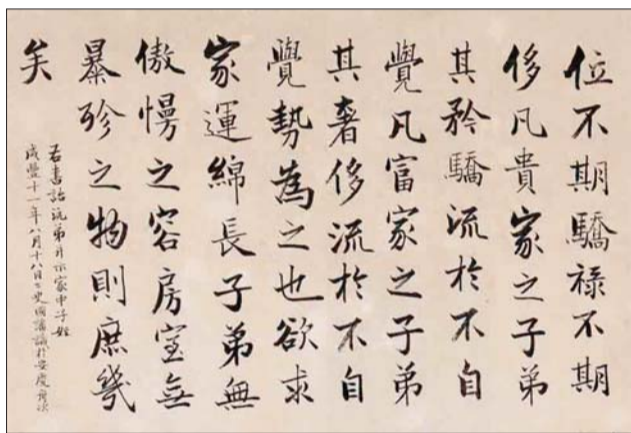 位不期驕祿不期
侈凡貴家之子弟
其矜驕流於不自
覺凡富家之子弟
其奢侈流於不自
覺勢為之也欲求
家運綿長子弟無
傲慢之容房室無
暴殄之物則庶幾
矣
右書詒沅弟并示家中子姪
咸豐十一年八月十八日兄國藩識於安慶舟次